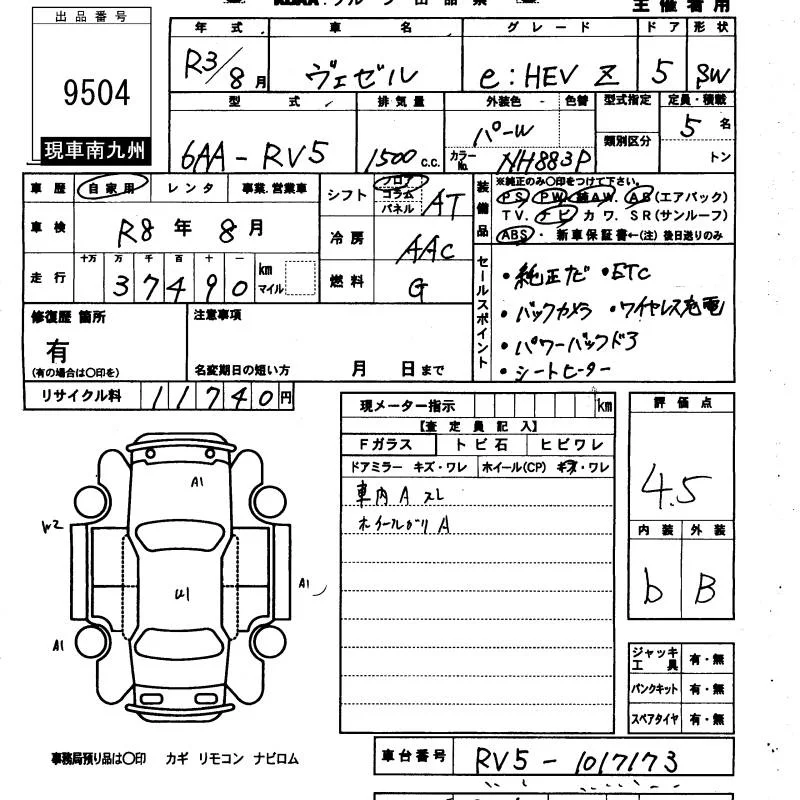 出品番号
9504
現車南九州
主催者用
年式 車名 グレード ドア 形状
R3/8月 ヴェゼル e:HEV Z 5 SW
型式 排気量 外装色 色替 型式指定 定員・積載
6AA-RV5 1500 c.c. パール 類別区分 5名
カラーNo. NH883P トン
車歴 自家用 レンタ 事業.営業車
車検 R8年8月
走行 十万 万 千 百 十 一 km マイル
37490
シフト フロア コラム パネル AT
冷房 AAC
燃料 G
装備品
※純正のみ○印をつけて下さい。
PS. PW. 純AW. AB(エアバック)
TV. ナビ カワ. SR(サンルーフ)
ABS・ 新車保証書←(注) 後日送りのみ
セールスポイント
・純正ナビ ・ETC
・バックカメラ ・ワイヤレス充電
・パワーバックドア
・シートヒーター
修復歴 箇所
有
(有の場合は○印を)
注意事項
名変期日の短い方 月 日まで
リサイクル料 11740円
現メーター指示 km
【査定員記入】
Fガラス トビ石 ヒビワレ
ドアミラー キズ・ワレ ホイール(CP) キズ・ワレ
車内 A スレ
ホイールガリ A
評価点
4.5
内装 外装
b B
A1
W2
U1
A1
A1
ジャッキ工具 有・無
パンクキット 有・無
スペアタイヤ 有・無
事務局預り品は○印 カギ リモコン ナビロム
車台番号 RV5-1017173